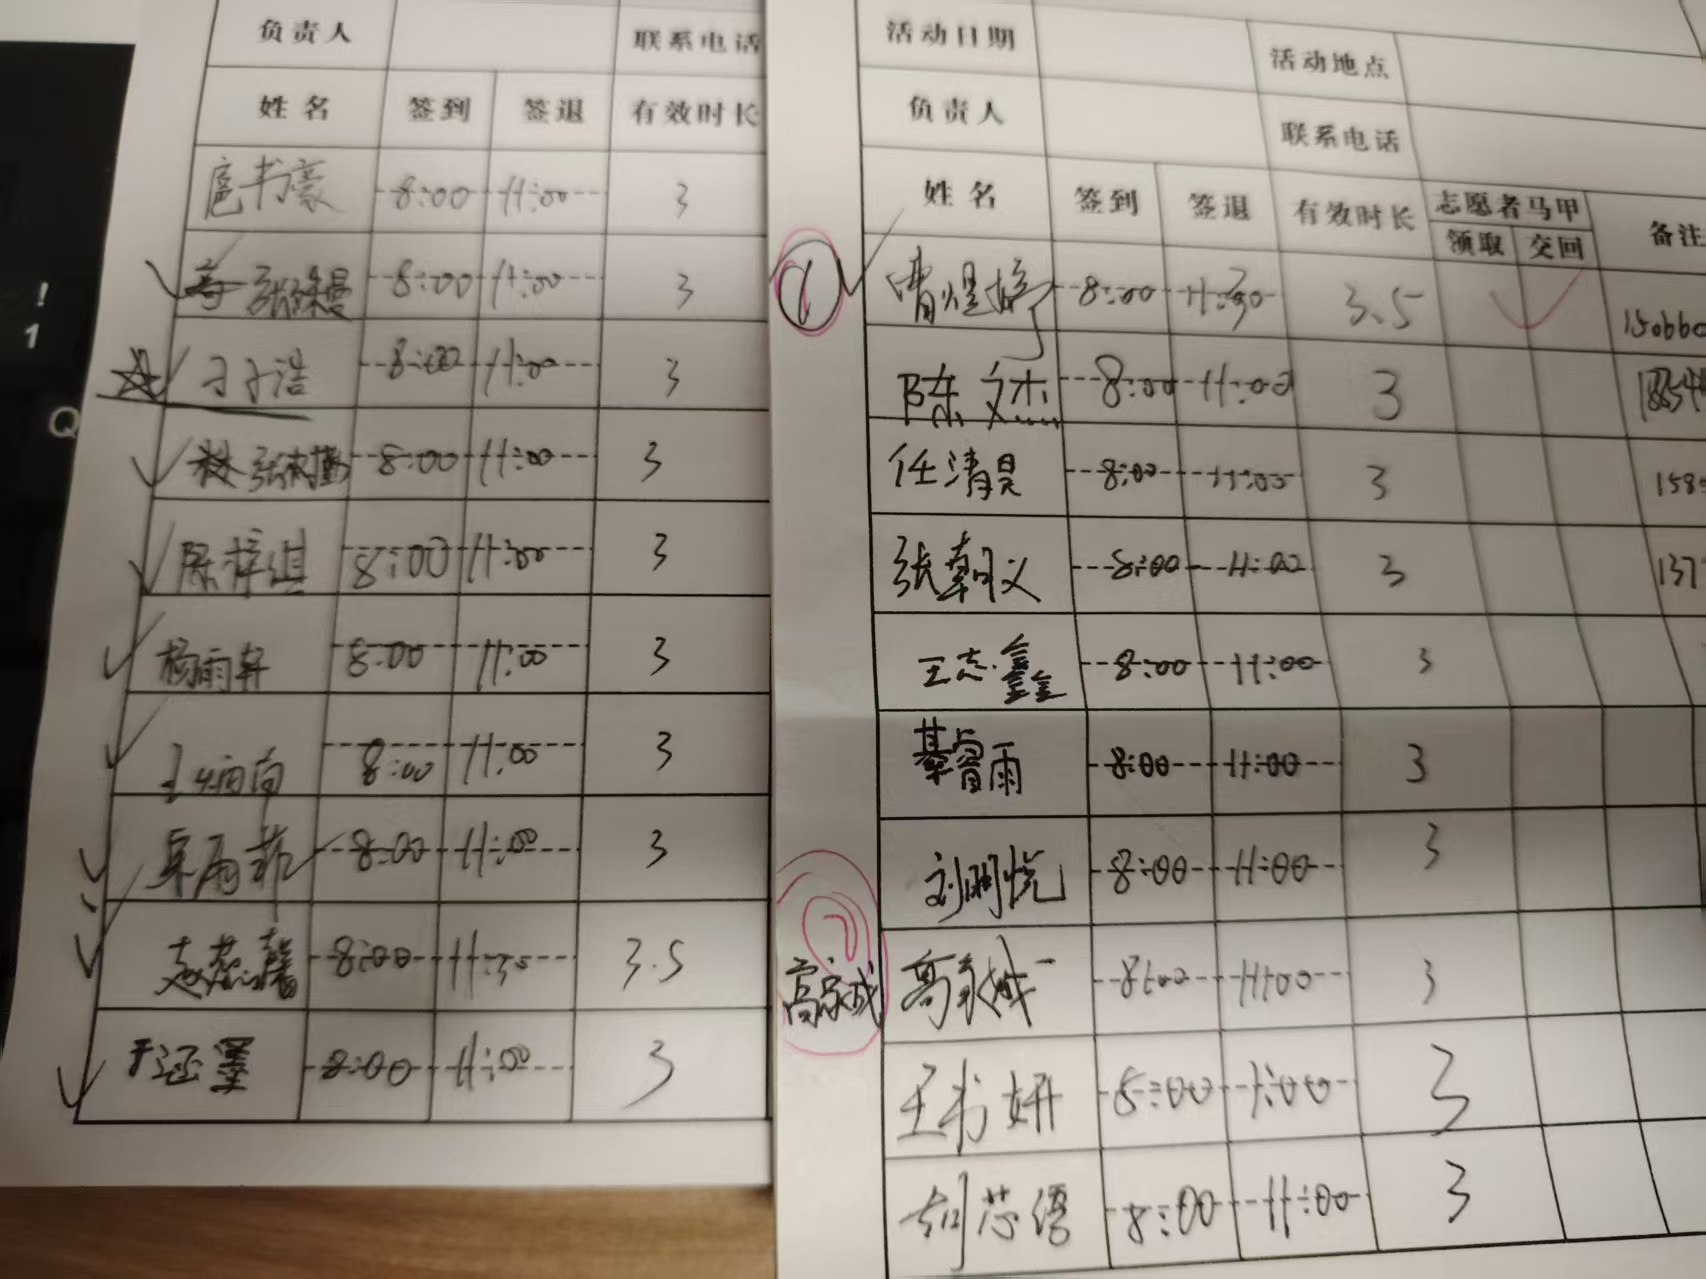 负责人 联系电话
姓名 签到 签退 有效时长
扈书豪 8:00 11:00 3
8:00 11:00 3
子浩 8:00 11:00 3
8:00 11:00 3
陈梓淇 8:00 11:00 3
杨雨轩 8:00 11:00 3
8:00 11:00 3
雨菲 8:00 11:00 3
赵蕊馨 8:00 11:30 3.5
于涵墨 8:00 11:00 3
!
1
Q
活动日期 活动地点
负责人 联系电话
姓名 签到 签退 有效时长 志愿者马甲 备注
领取 交回
1 曹煜婷 8:00 11:30 3.5
陈文杰 8:00 11:00 3
任清昊 8:00 11:00 3 158
张朝义 8:00 11:00 3 137
王志鑫 8:00 11:00 3
綦雨 8:00 11:00 3
刘明悦 8:00 11:00 3
高家成 高家成 8:00 11:00 3
王书妍 8:00 11:00 3
刘芯语 8:00 11:00 3